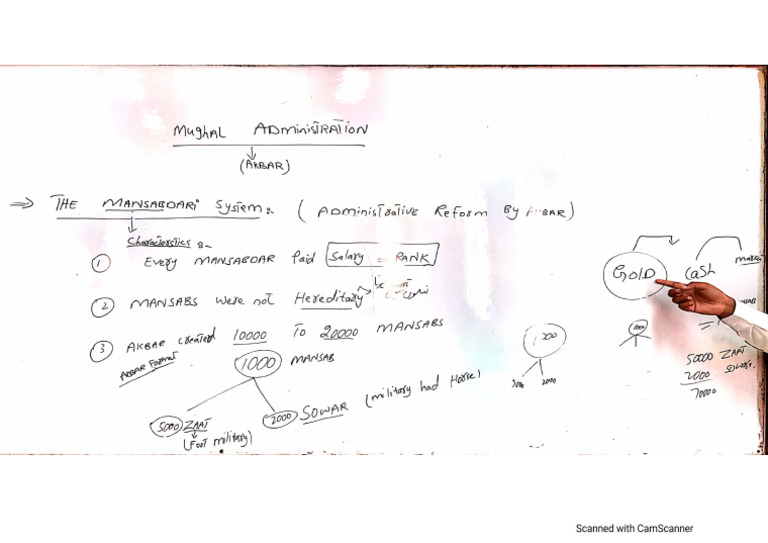 Mughal ADMINISTRATION
(AKBAR)
⇒ THE MANSABDARI System:- (ADMINISTRATIVE Reform By AKBAR)
Characterstics :-
① Every MANSABDAR Paid Salary = RANK
② MANSABS were not Hereditary
③ AKBAR created 10000 To 20000 MANSABS
AKBAR Format
1000 MANSAB
5000 ZAAT
(Foot military)
2000 SOWAR (military had Horse)
2000
GOLD
Cash
50000 ZAAT
2000 SOWAR
70000
Scanned with CamScanner